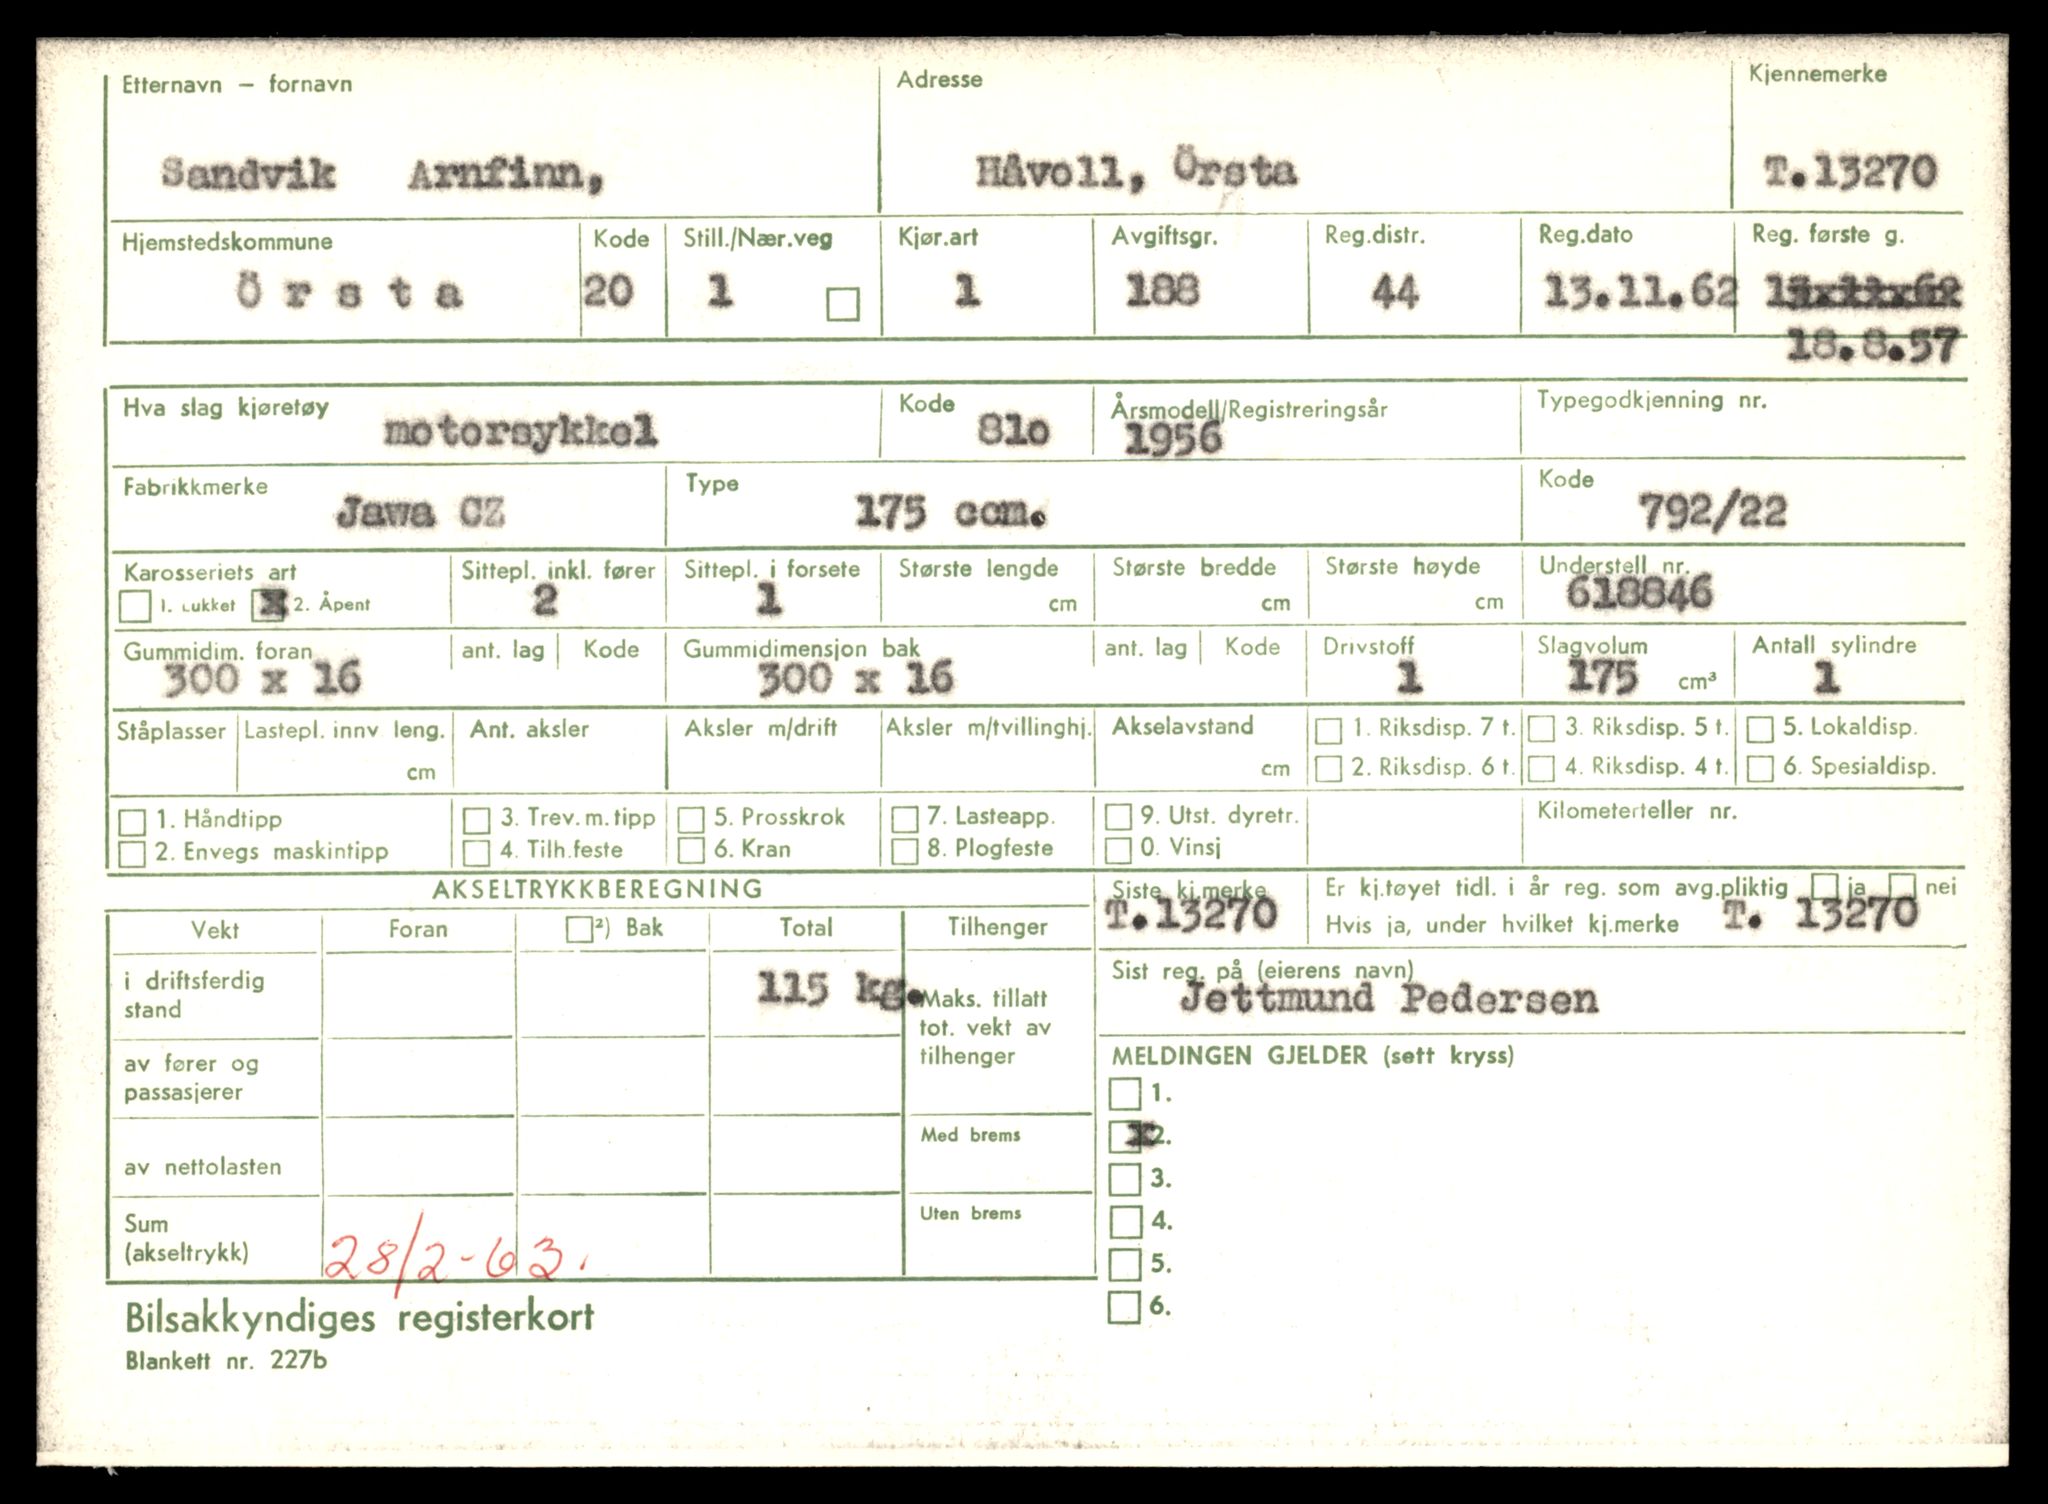 Etternavn — fornavn Adresse Kjennemerke
Sandvik Arnfinn, Håvoll, Örsta T.13270
Hjemstedskommune Kode Still./Nær.veg Kjør.art Avgiftsgr. Reg.distr. Reg.dato Reg. første g.
Ö r s t a 20 1 1 188 44 13.11.62 13.11.62
18.8.57
Hva slag kjøretøy Kode Årsmodell/Registreringsår Typegodkjenning nr.
motorsykkel 81o 1956
Fabrikkmerke Type Kode
Jawa CZ 175 ccm. 792/22
Karosseriets art Sittepl. inkl. fører Sittepl. i forsete Største lengde Største bredde Største høyde Understell nr.
1. Lukket x 2. Åpent 2 1 cm cm cm 618846
Gummidim. foran ant. lag Kode Gummidimensjon bak ant. lag Kode Drivstoff Slagvolum Antall sylindre
300 x 16 300 x 16 1 175 cm³ 1
Ståplasser Lastepl. innv leng. Ant. aksler Aksler m/drift Aksler m/tvillinghj. Akselavstand 1. Riksdisp. 7 t. 3. Riksdisp. 5 t. 5. Lokaldisp.
cm cm 2. Riksdisp. 6 t. 4. Riksdisp. 4 t. 6. Spesialdisp.
1. Håndtipp 3. Trev. m. tipp 5. Prosskrok 7. Lasteapp. 9. Utst. dyretr. Kilometerteller nr.
2. Envegs maskintipp 4. Tilh.feste 6. Kran 8. Plogfeste 0. Vinsj
AKSELTRYKKBEREGNING Siste kj.merke Er kj.tøyet tidl. i år reg. som avg.pliktig ja nei
T.13270 Hvis ja, under hvilket kj.merke T. 13270
Vekt Foran ²) Bak Total Tilhenger
Sist reg. på (eierens navn)
Jettmund Pedersen
i driftsferdig
stand
115 kg.
Maks. tillatt
tot. vekt av
tilhenger
av fører og
passasjerer
MELDINGEN GJELDER (sett kryss)
1.
x 2.
3.
4.
5.
6.
Med brems
av nettolasten
Uten brems
Sum
(akseltrykk)
28/2-63.
Bilsakkyndiges registerkort
Blankett nr. 227b